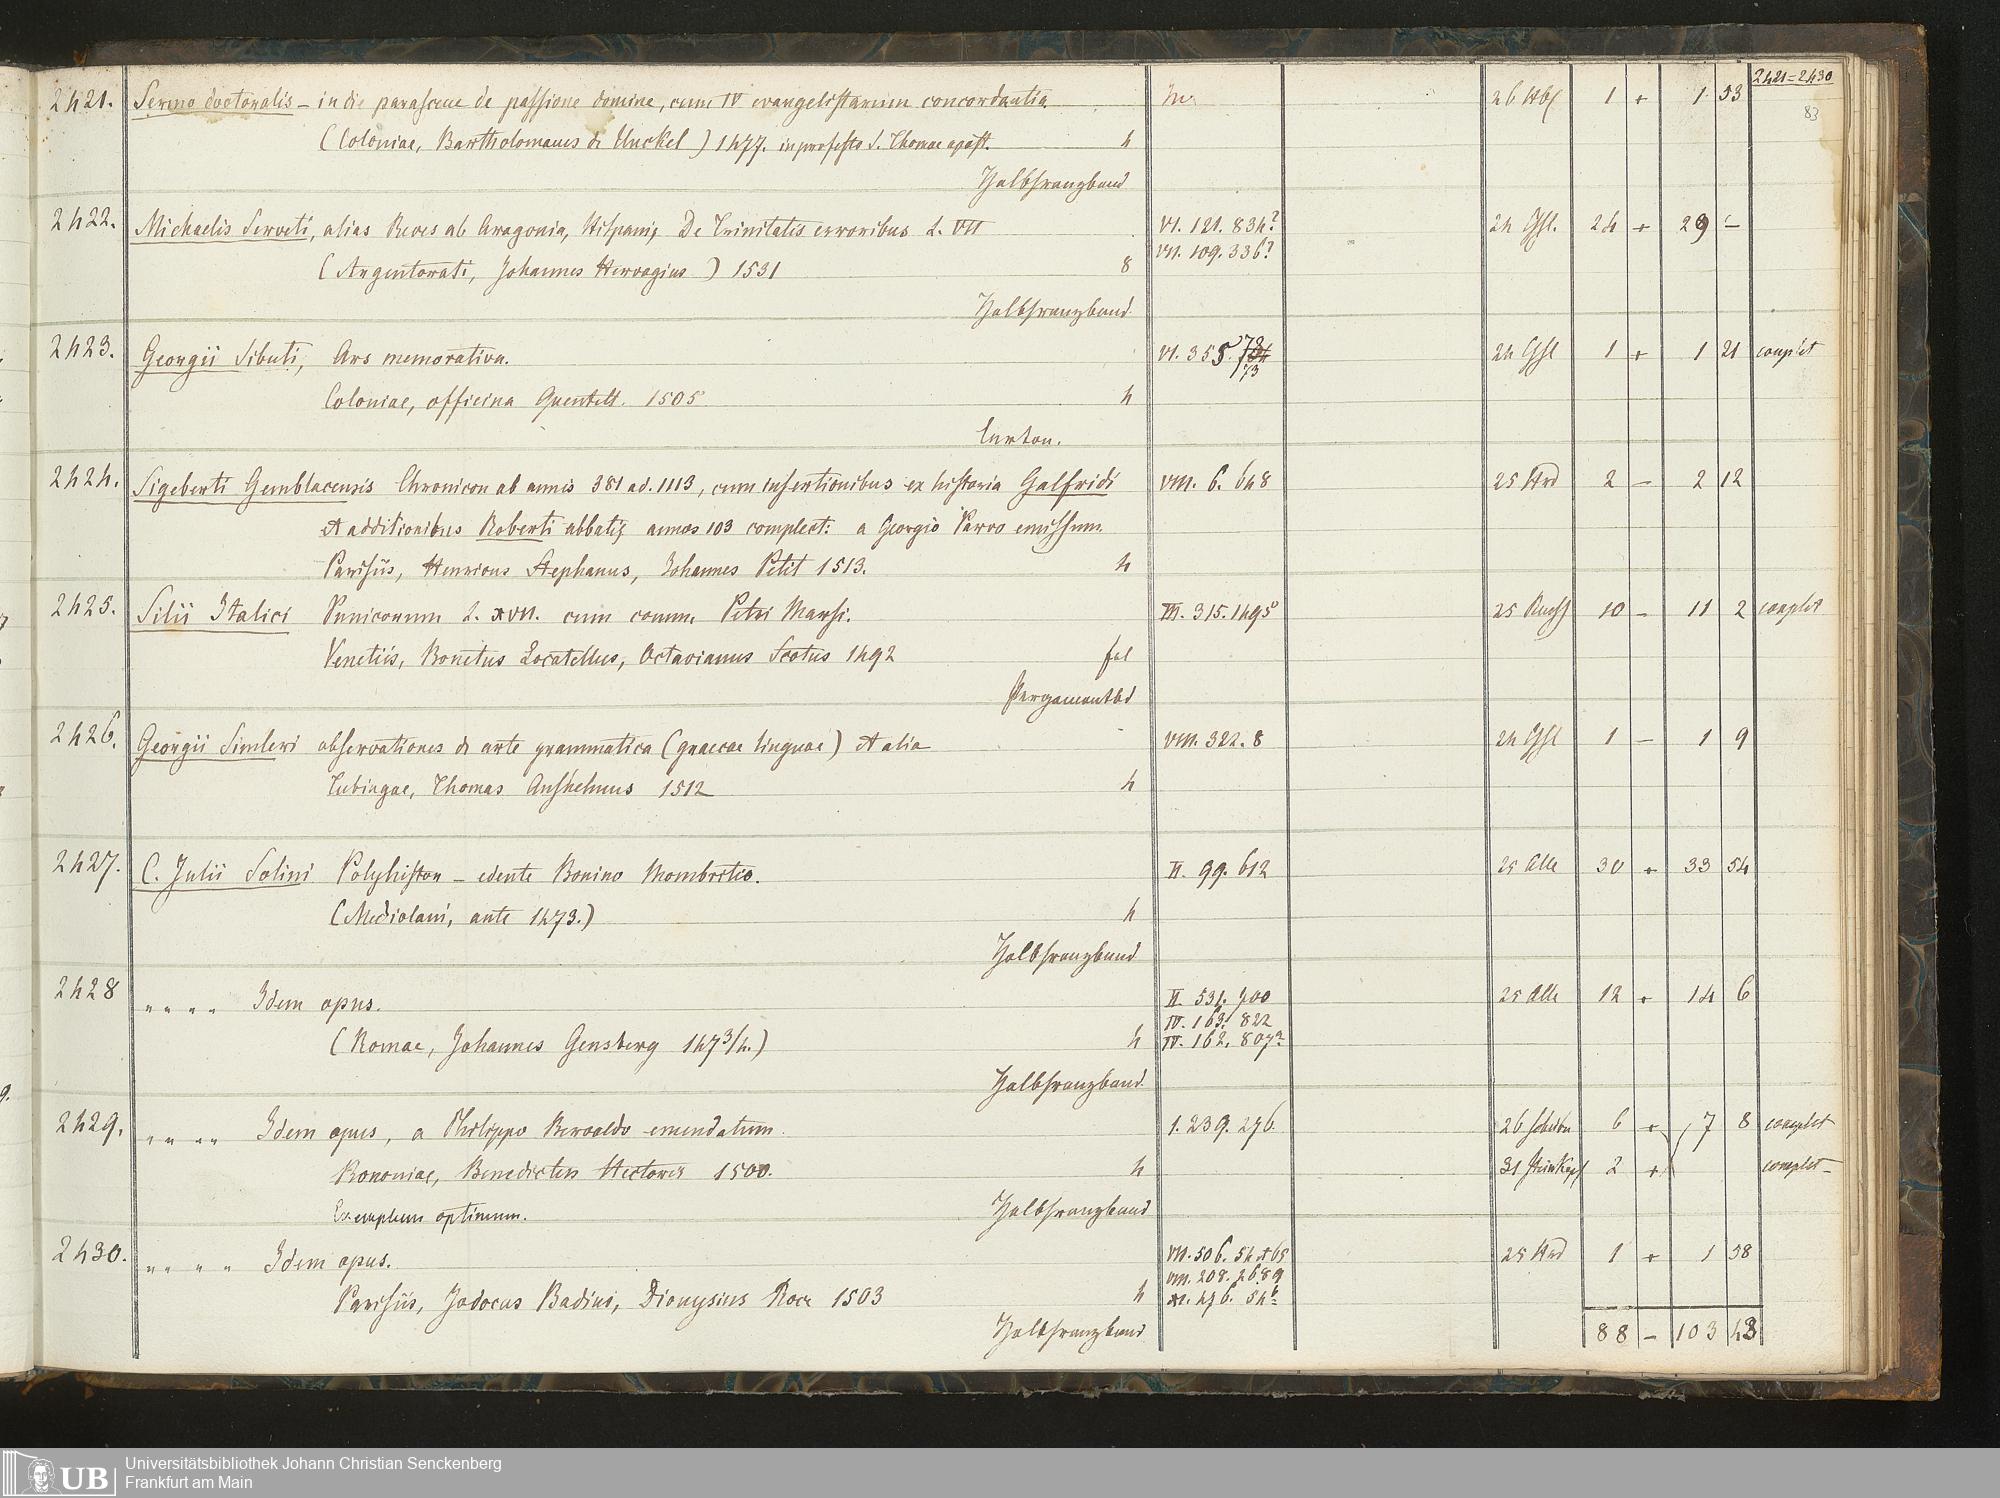 2421=2430
83
2421. Sermo doctoralis – in die parasceue de passione domine, cum IV evangelistarum concordantia 26 1 + 1 53
(Coloniae, Bartholomaeus de Unckel) 1477. in profesto S. Thomae apost. 4
Halbfranzband
2422. Michaelis Serveti, alias Reves ab Aragonia, Hispani, De Trinitatis erroribus L. VII VI. 121. 834? 24 Gsl. 24 + 29 –
VII. 109. 336?
(Argentorati, Johannes Hervagius) 1531 8
Halbfranzband
2423. Georgii Sibuti, Ars memorativa. VI. 355. 72 24 Gsl 1 + 1 21 complet
73
Coloniae, officina Quentell. 1505 4
Carton.
2424. Sigeberti Gemblacensis Chronicon ab annis 381 ad. 1113, cum insertionibus ex historia Galfridi VIII. 6. 648 25 2 – 2 12
et additionibus Roberti abbatis annos 103 complect: a Georgio Parvo emissum.
Parisiis, Henricus Stephanus, Johannes Petit 1513. 4
2425. Silii Italici Punicorum L. XVII. cum comm. Petri Marsi. III. 315. 1495 25 10 – 11 2 complet
Venetiis, Bonetus Locatellus, Octavianus Scotus 1492 fol
Pergamentbd
2426. Georgii Simleri observationes de arte grammatica (graecae linguae) et alia VIII. 322. 8 24 Gsl 1 – 1 9
Tubingae, Thomas Anshelmus 1512 4
2427. C. Julii Solini Polyhistor – edente Bonino Mombritio. II. 99. 612 25 Alle 30 + 33 54
(Mediolani, ante 1473.) 4
Halbfranzband
2428 " " " " Idem opus. II. 531. 700 25 Alle 12 + 14 6
IV. 163. 822
(Romae, Johannes Gensberg 1473/4.) 4 IV. 162. 807?
Halbfranzband
2429. " " " " Idem opus, a Philippo Beroaldo emendatum. 1. 239. 276. 26 6 + 7 8 complet
Bononiae, Benedictus Hectoris 1500. 4 31 2 + complet
Exemplum optimum. Halbfranzband
2430. " " " " Idem opus. VII. 506. 54 et 65 25 1 + 1 58
VIII. 208. 2689
Parisiis, Jodocus Badius, Dionysius Roce 1503 4 XI. 476. 54
Halbfranzband 88 – 103 43
Universitätsbibliothek Johann Christian Senckenberg
UB Frankfurt am Main